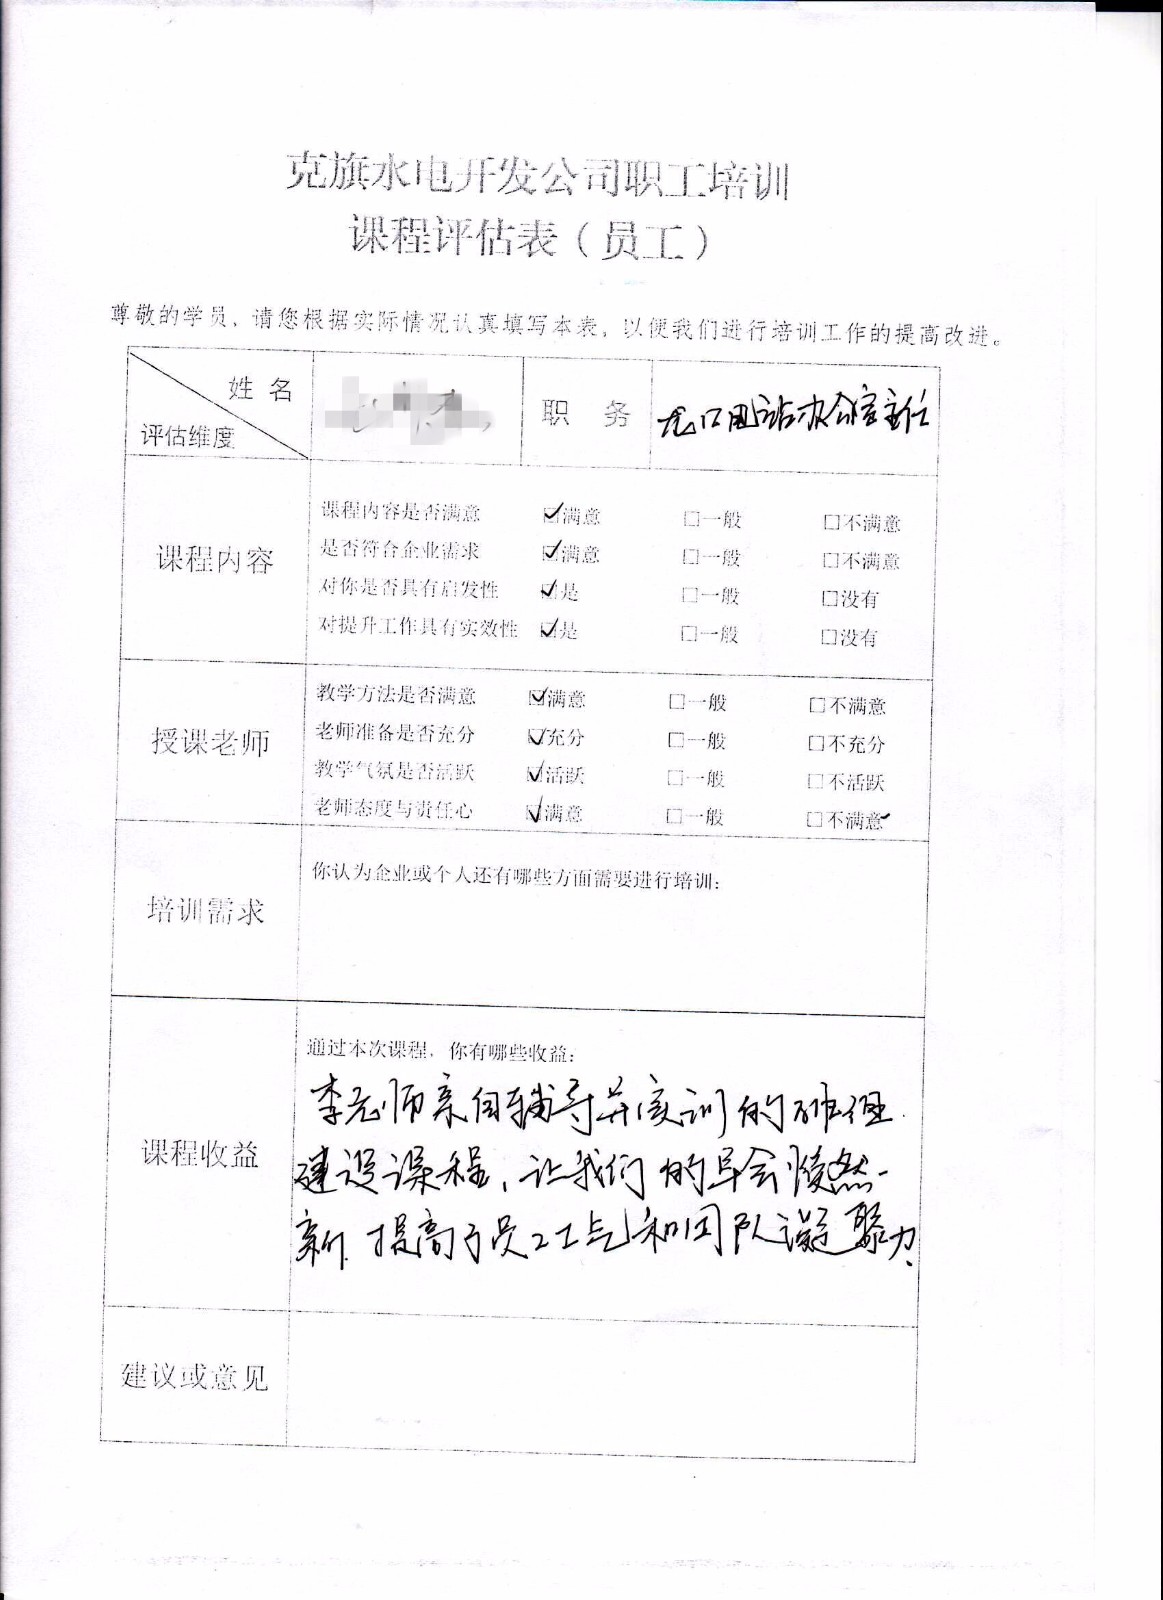 克旗水电开发公司职工培训
课程评估表（员工）
尊敬的学员，请您根据实际情况认真填写本表，以便我们进行培训工作的提高改进。
姓 名
评估维度
职 务
龙口电站办公室主任
课程内容
课程内容是否满意 ☑满意 □一般 □不满意
是否符合企业需求 ☑满意 □一般 □不满意
对你是否具有启发性 ☑是 □一般 □没有
对提升工作具有实效性 ☑是 □一般 □没有
授课老师
教学方法是否满意 ☑满意 □一般 □不满意
老师准备是否充分 ☑充分 □一般 □不充分
教学气氛是否活跃 ☑活跃 □一般 □不活跃
老师态度与责任心 ☑满意 □一般 □不满意
培训需求
你认为企业或个人还有哪些方面需要进行培训：
课程收益
通过本次课程，你有哪些收益：
李老师亲自辅导并培训的班组
建设课程，让我们的早会焕然一
新，提高了员工士气和团队凝聚力。
建议或意见